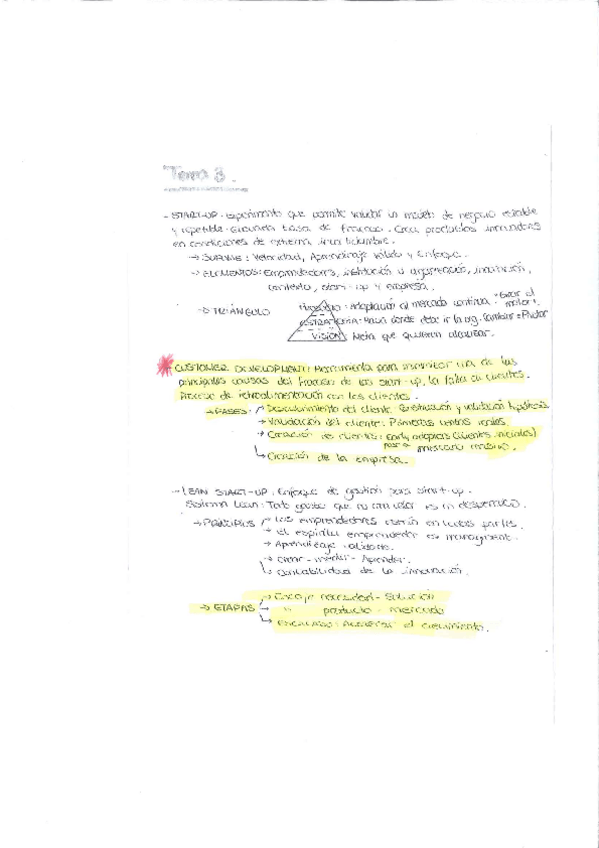 Tema 3.
- START-UP. Experimento que permite validar un modelo de negocio estable
y repetible. Elevada tasa de fracaso. Crea productos innovadores
en condiciones de extrema incertidumbre.
→ SUPONE: Velocidad, Aprendizaje válido y Enfoque.
→ ELEMENTOS: Emprendedores, institución u organización, innovación,
contexto, start-up y empresa.
→ TRIÁNGULO
PRODUCTO: Adaptación al mercado continua. motor.
ESTRATEGIA: Hacia donde debe ir la org. Cambiar = Pivotar
VISIÓN: Meta que quieren alcanzar.
* CUSTOMER DEVELOPMENT: Herramienta para minimizar una de las
principales causas del fracaso de las start-up, la falta de clientes.
Proceso de retroalimentación con los clientes.
→ FASES: → Descubrimiento del cliente. Construcción y validación hipótesis
→ Validación del cliente: Primeras ventas reales.
→ Creación de clientes: Early adopters (clientes iniciales)
mercado masivo.
→ Creación de la empresa.
- LEAN START-UP. Enfoque de gestión para start-up.
Sistema Lean: Todo gasto que no crea valor es un desperdicio.
→ PRINCIPIOS → Los emprendedores están en todas partes.
→ El espíritu emprendedor es managment.
→ Aprendizaje validado.
→ Crear - Medir - Aprender.
→ Contabilidad de la innovación.
→ ETAPAS → Encaje necesidad - Solución
→ " producto - mercado
→ Escalado: Acelerar el crecimiento.